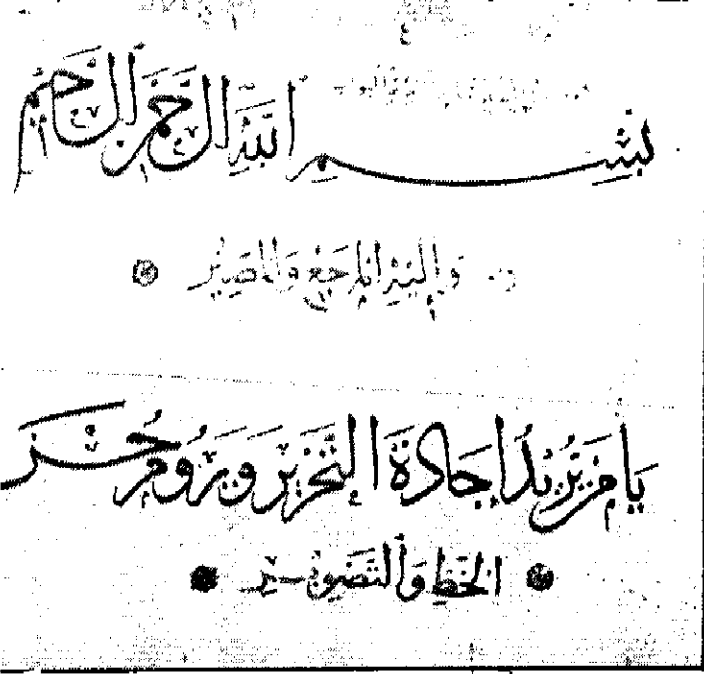 بسم الله الرحمن الرحيم
وإليه المرجع والمصير
يا من يريد إجادة التحرير ويروم حسن
الخط والتصوير